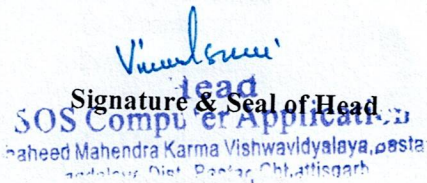 Head
Signature & Seal of Head
SOS Computer Application
Shaheed Mahendra Karma Vishwavidyalaya, Bastar
Dist. Bastar Chhattisgarh